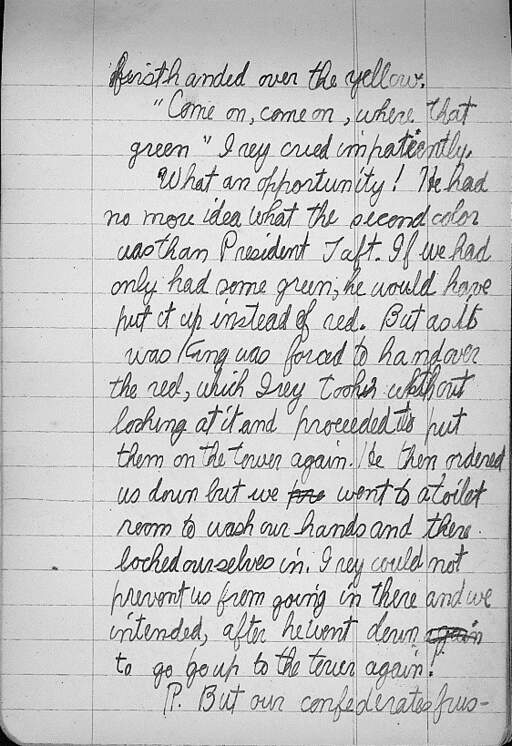 first handed over the yellow.
"Come on, come on, where that
green" Irey cried impatiently.
What an opportunity! He had
no more idea what the second color
was than President Taft. If we had
only had some green, he would have
put it up instead of red. But as it
was King was forced to hand over
the red, which Irey took without
looking at it and proceeded to put
them on the tower again. He then ordered
us down but we went to a toilet
room to wash our hands and there
locked ourselves in. Irey could not
prevent us from going in there and we
intended, after he went down again
to go go up to the tower again!
P. But our confederates frus-